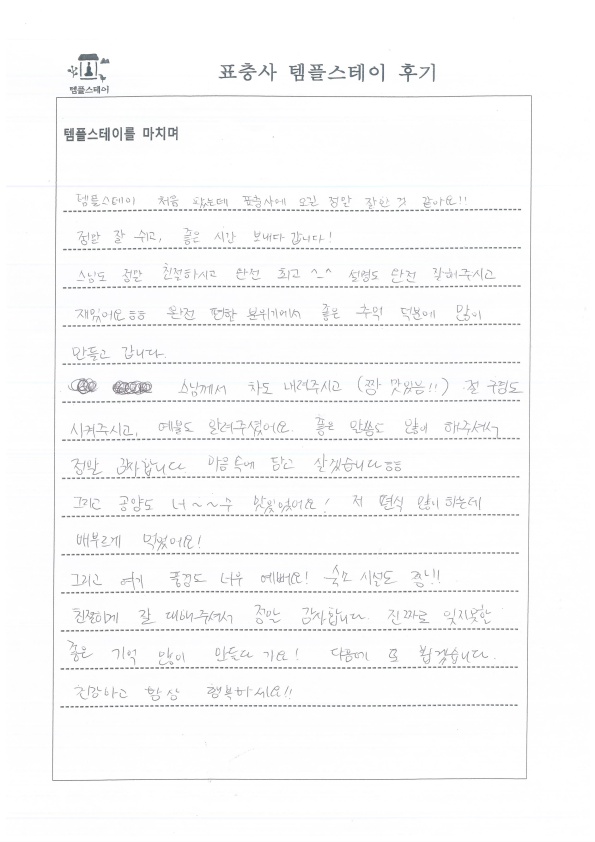 템플스테이
표충사 템플스테이 후기
템플스테이를 마치며
템플스테이 처음 왔는데 표충사에 오길 정말 잘한 것 같아요!!
정말 잘 쉬고, 좋은 시간 보내다 갑니다!
스님도 정말 친절하시고 완전 최고 ^_^ 설명도 완전 잘해주시고
재밌어요ㅎㅎ 완전 편한 분위기에서 좋은 추억 덕분에 많이
만들고 갑니다.
스님께서 차도 내려주시고 (짱 맛있음!!) 절 구경도
시켜주시고, 예불도 알려주셨어요. 좋은 말씀도 많이 해주셔서
정말 감사합니다 마음속에 담고 살겠습니다ㅎㅎ
그리고 공양도 너~~무 맛있었어요! 저 편식 많이 하는데
배부르게 먹었어요!
그리고 여기 풍경도 너무 예뻐요! 숙소 시설도 좋고!!
친절하게 잘 대해주셔서 정말 감사합니다. 진짜로 잊지못할
좋은 기억 많이 만들다 가요! 다음에 또 뵙겠습니다.
건강하고 항상 행복하세요!!